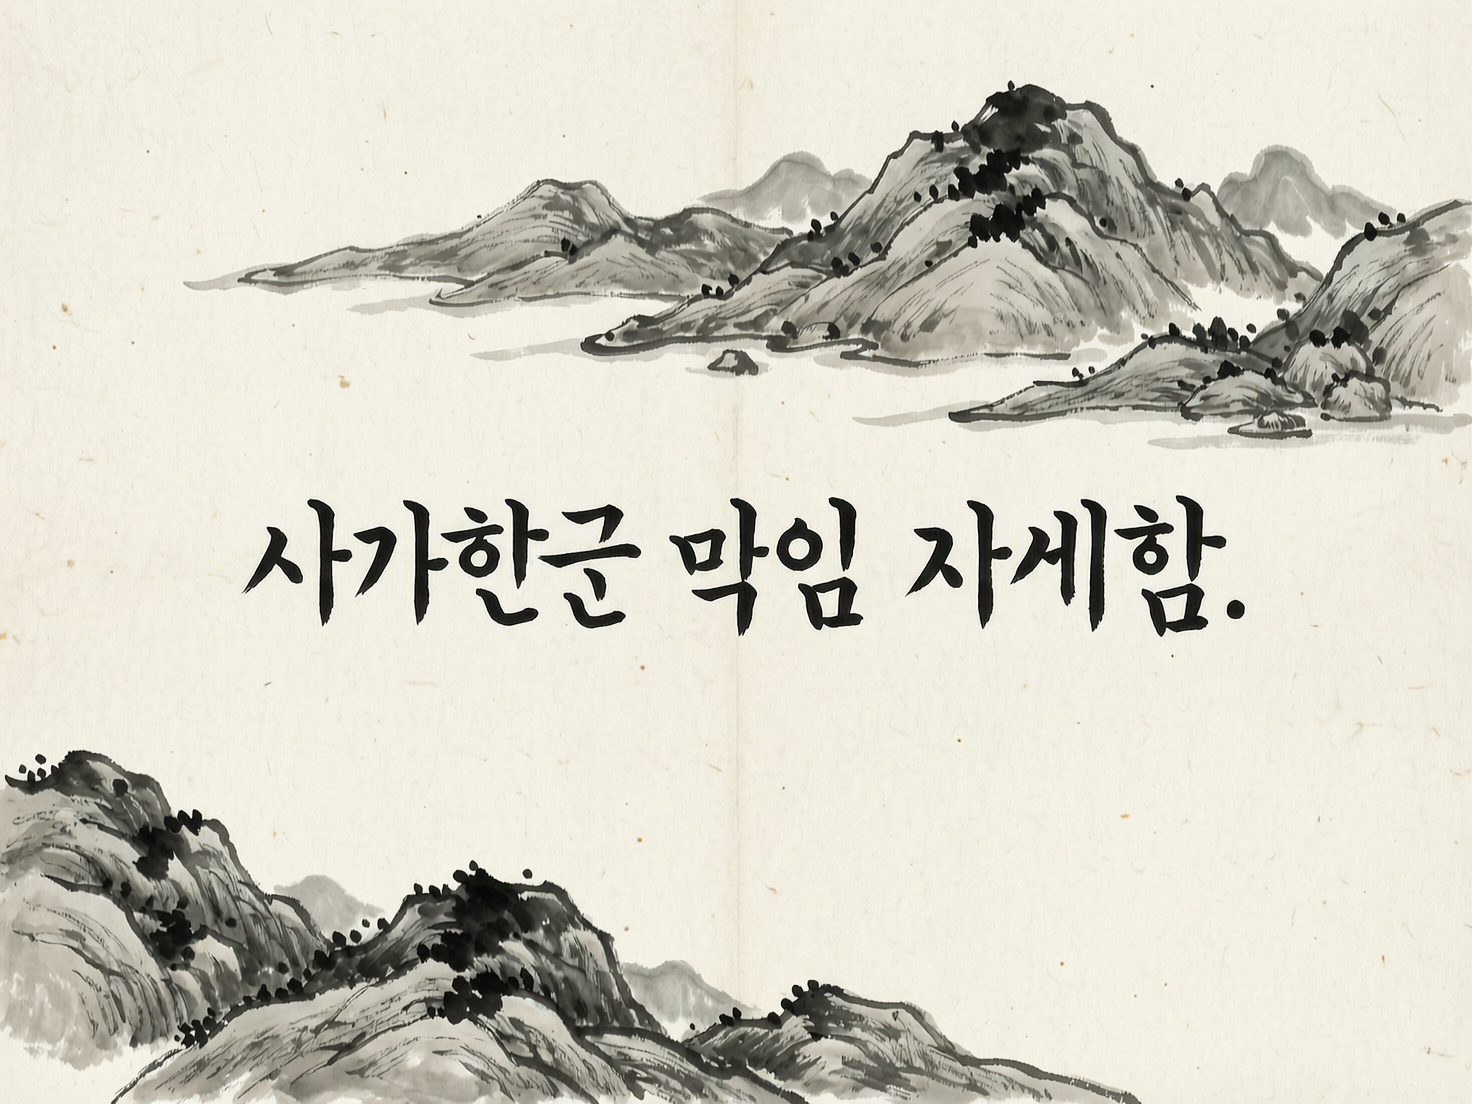 사가한군 막임 자세함.